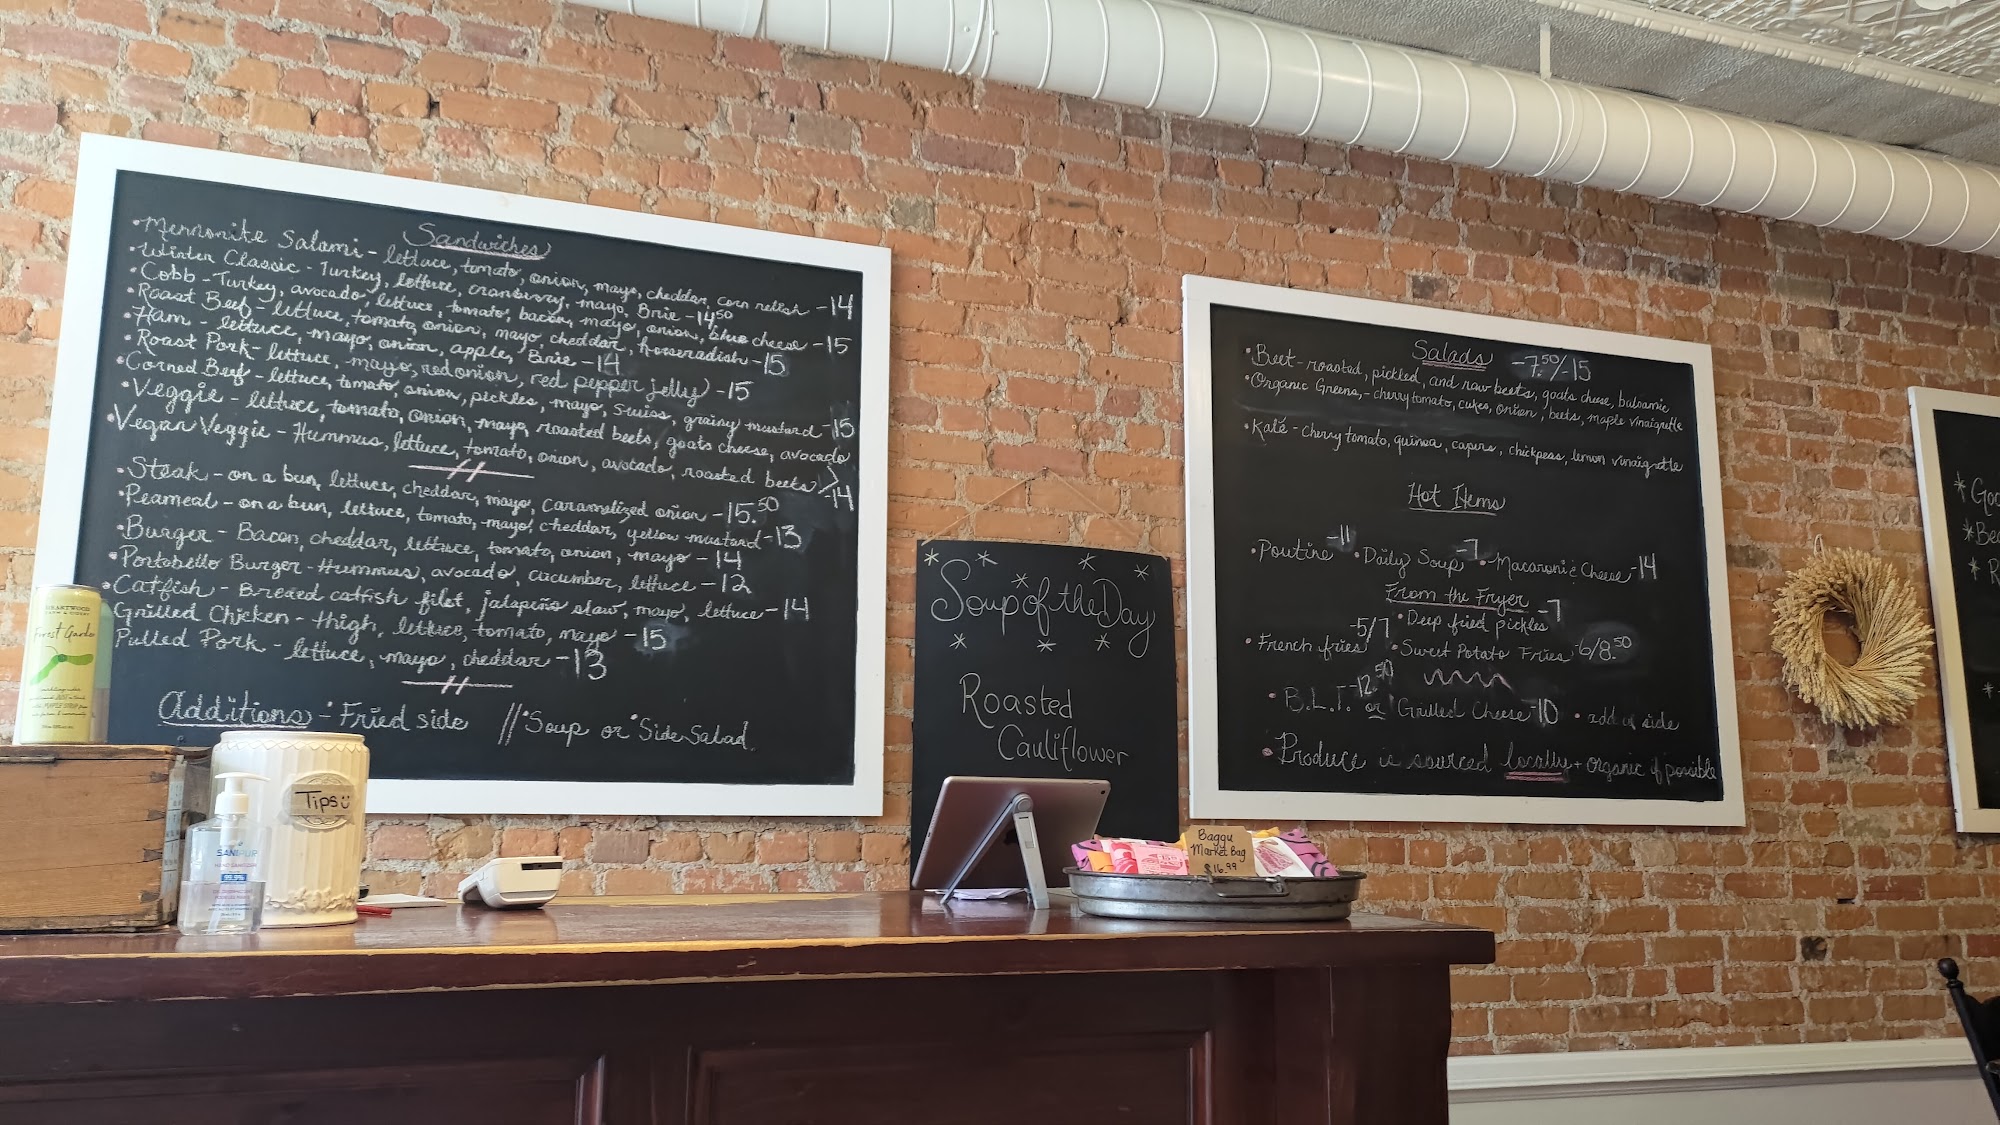 Sandwiches
• Mennonite Salami - lettuce, tomato, onion, mayo, cheddar, corn relish - 14
• Winter Classic - Turkey, lettuce, cranberry, mayo, Brie - 14.50
• Cobb - Turkey, avocado, lettuce, tomato, bacon, mayo, onion, blue cheese - 15
• Roast Beef - lettuce, tomato, onion, mayo, cheddar, horseradish - 15
• Ham - lettuce, mayo, onion, apple, Brie - 14
• Roast Pork - lettuce, mayo, red onion, red pepper jelly - 15
• Corned Beef - lettuce, tomato, onion, pickles, mayo, swiss, grainy mustard - 15
• Veggie - lettuce, tomato, onion, mayo, roasted beets, goats cheese, avocado
• Vegan Veggie - Hummus, lettuce, tomato, onion, avocado, roasted beets > - 14
• Steak - on a bun, lettuce, cheddar, mayo, caramelized onion - 15.50
• Peameal - on a bun, lettuce, tomato, mayo, cheddar, yellow mustard - 13
• Burger - Bacon, cheddar, lettuce, tomato, onion, mayo - 14
• Portobello Burger - Hummus, avocado, cucumber, lettuce - 12
• Catfish - Breaded catfish filet, jalapeño slaw, mayo, lettuce - 14
Grilled Chicken - thigh, lettuce, tomato, mayo - 15
Pulled Pork - lettuce, mayo, cheddar - 13
Additions - • Fried side // • Soup or • Side Salad
Soup of the Day
Roasted
Cauliflower
Salads - 7.50/-15
• Beet - roasted, pickled, and raw beets, goats cheese, balsamic
• Organic Greens, - cherry tomato, cukes, onion, beets, maple vinaigrette
• Kalé - cherry tomato, quinoa, capers, chickpeas, lemon vinaigrette
Hot Items
• Poutine - 11 • Daily Soup - 7 • Macaroni & Cheese - 14
From the Fryer
• Deep fried pickles - 7
• French fries - 5/7 • Sweet Potato Fries - 6/8.50
• B.L.T. - 12.50 or Grilled Cheese - 10 • add a side
• Produce is sourced locally + organic if possible
Forest Garden
Tips
SANIPUR
99.9%
Baggu
Market Bag
$16.99